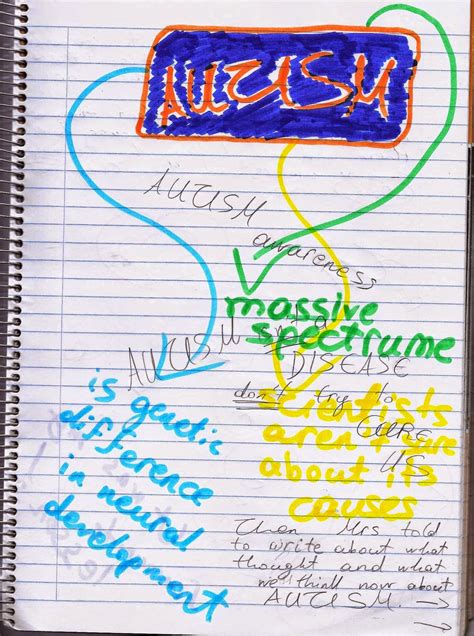 AUTISM
AUTISM
awareness
massive
spectrume
AUTISM
DISEASE
don't try to
CURE
US
scientists
aren't sure
about its
causes
is genetic
difference
in neural
development
Then Mrs told
to write about what
thought and what
we think now about
AUTISM. →